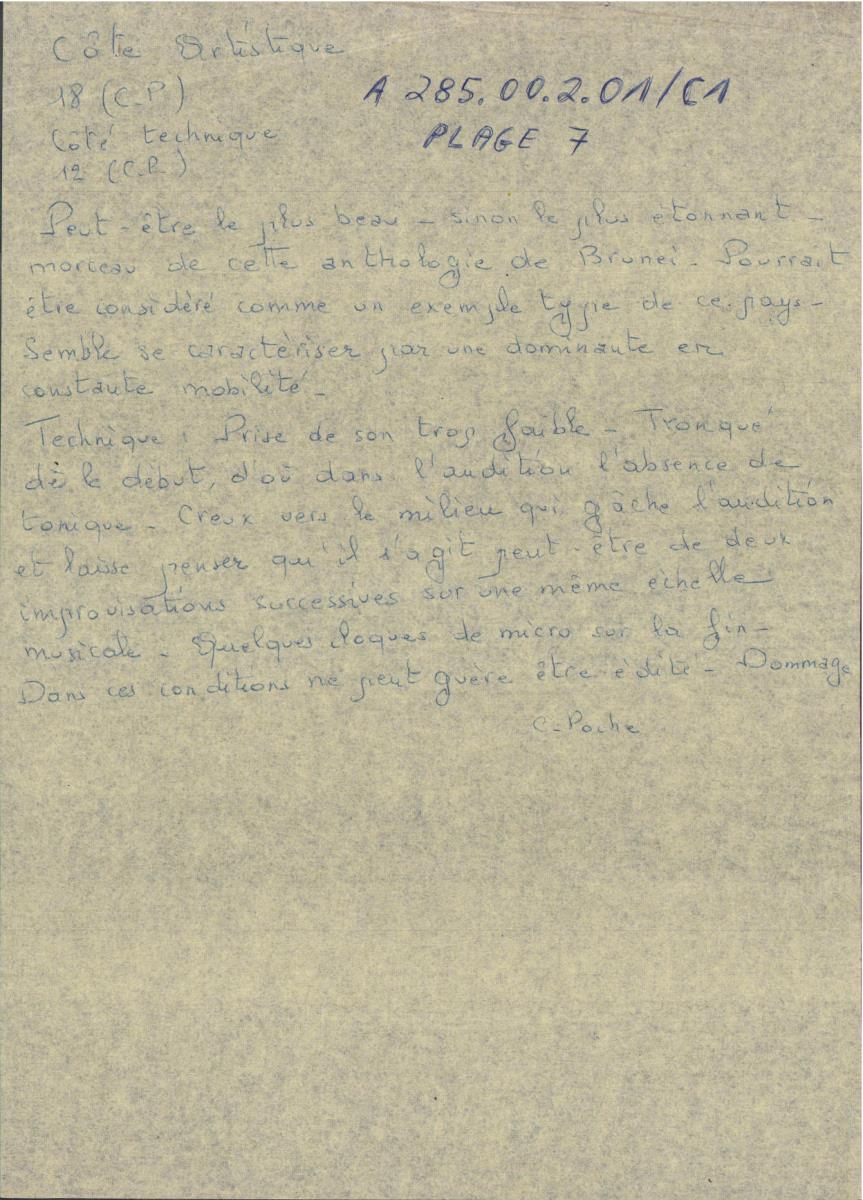 Côté Artistique
18 (C.P)
A 285.00.2.01/C1
Côté technique
PLAGE 7
12 (C.P.)
Peut-être le plus beau - sinon le plus étonnant -
morceau de cette anthologie de Brunei. Pourrait
être considéré comme un exemple type de ce pays -
Semble se caractériser par une dominante en
constante mobilité -
Technique : Prise de son trop faible - Tronqué
dès le début, d'où dans l'audition l'absence de
tonique - Creux vers le milieu qui gâche l'audition
et laisse penser qu'il s'agit peut-être de deux
improvisations successives sur une même échelle
musicale - Quelques cloques de micro sur la fin -
Dans ces conditions ne peut guère être édité - Dommage
C-Poche